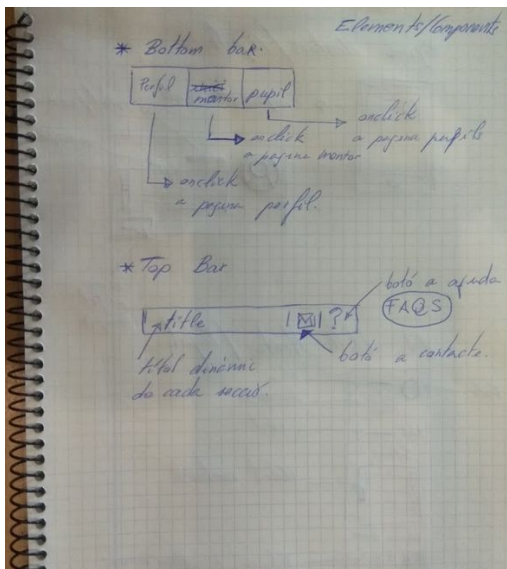 Elements/Components
* Bottom bar.
Perfil
mentor
pupil
onclick
a pagina pupils
onclick
a pagina mentor
onclick
a pagina perfil.
* Top Bar
botó a ajuda
FAQS
title
?
botó a contacte.
títol dinàmic
de cada secció.